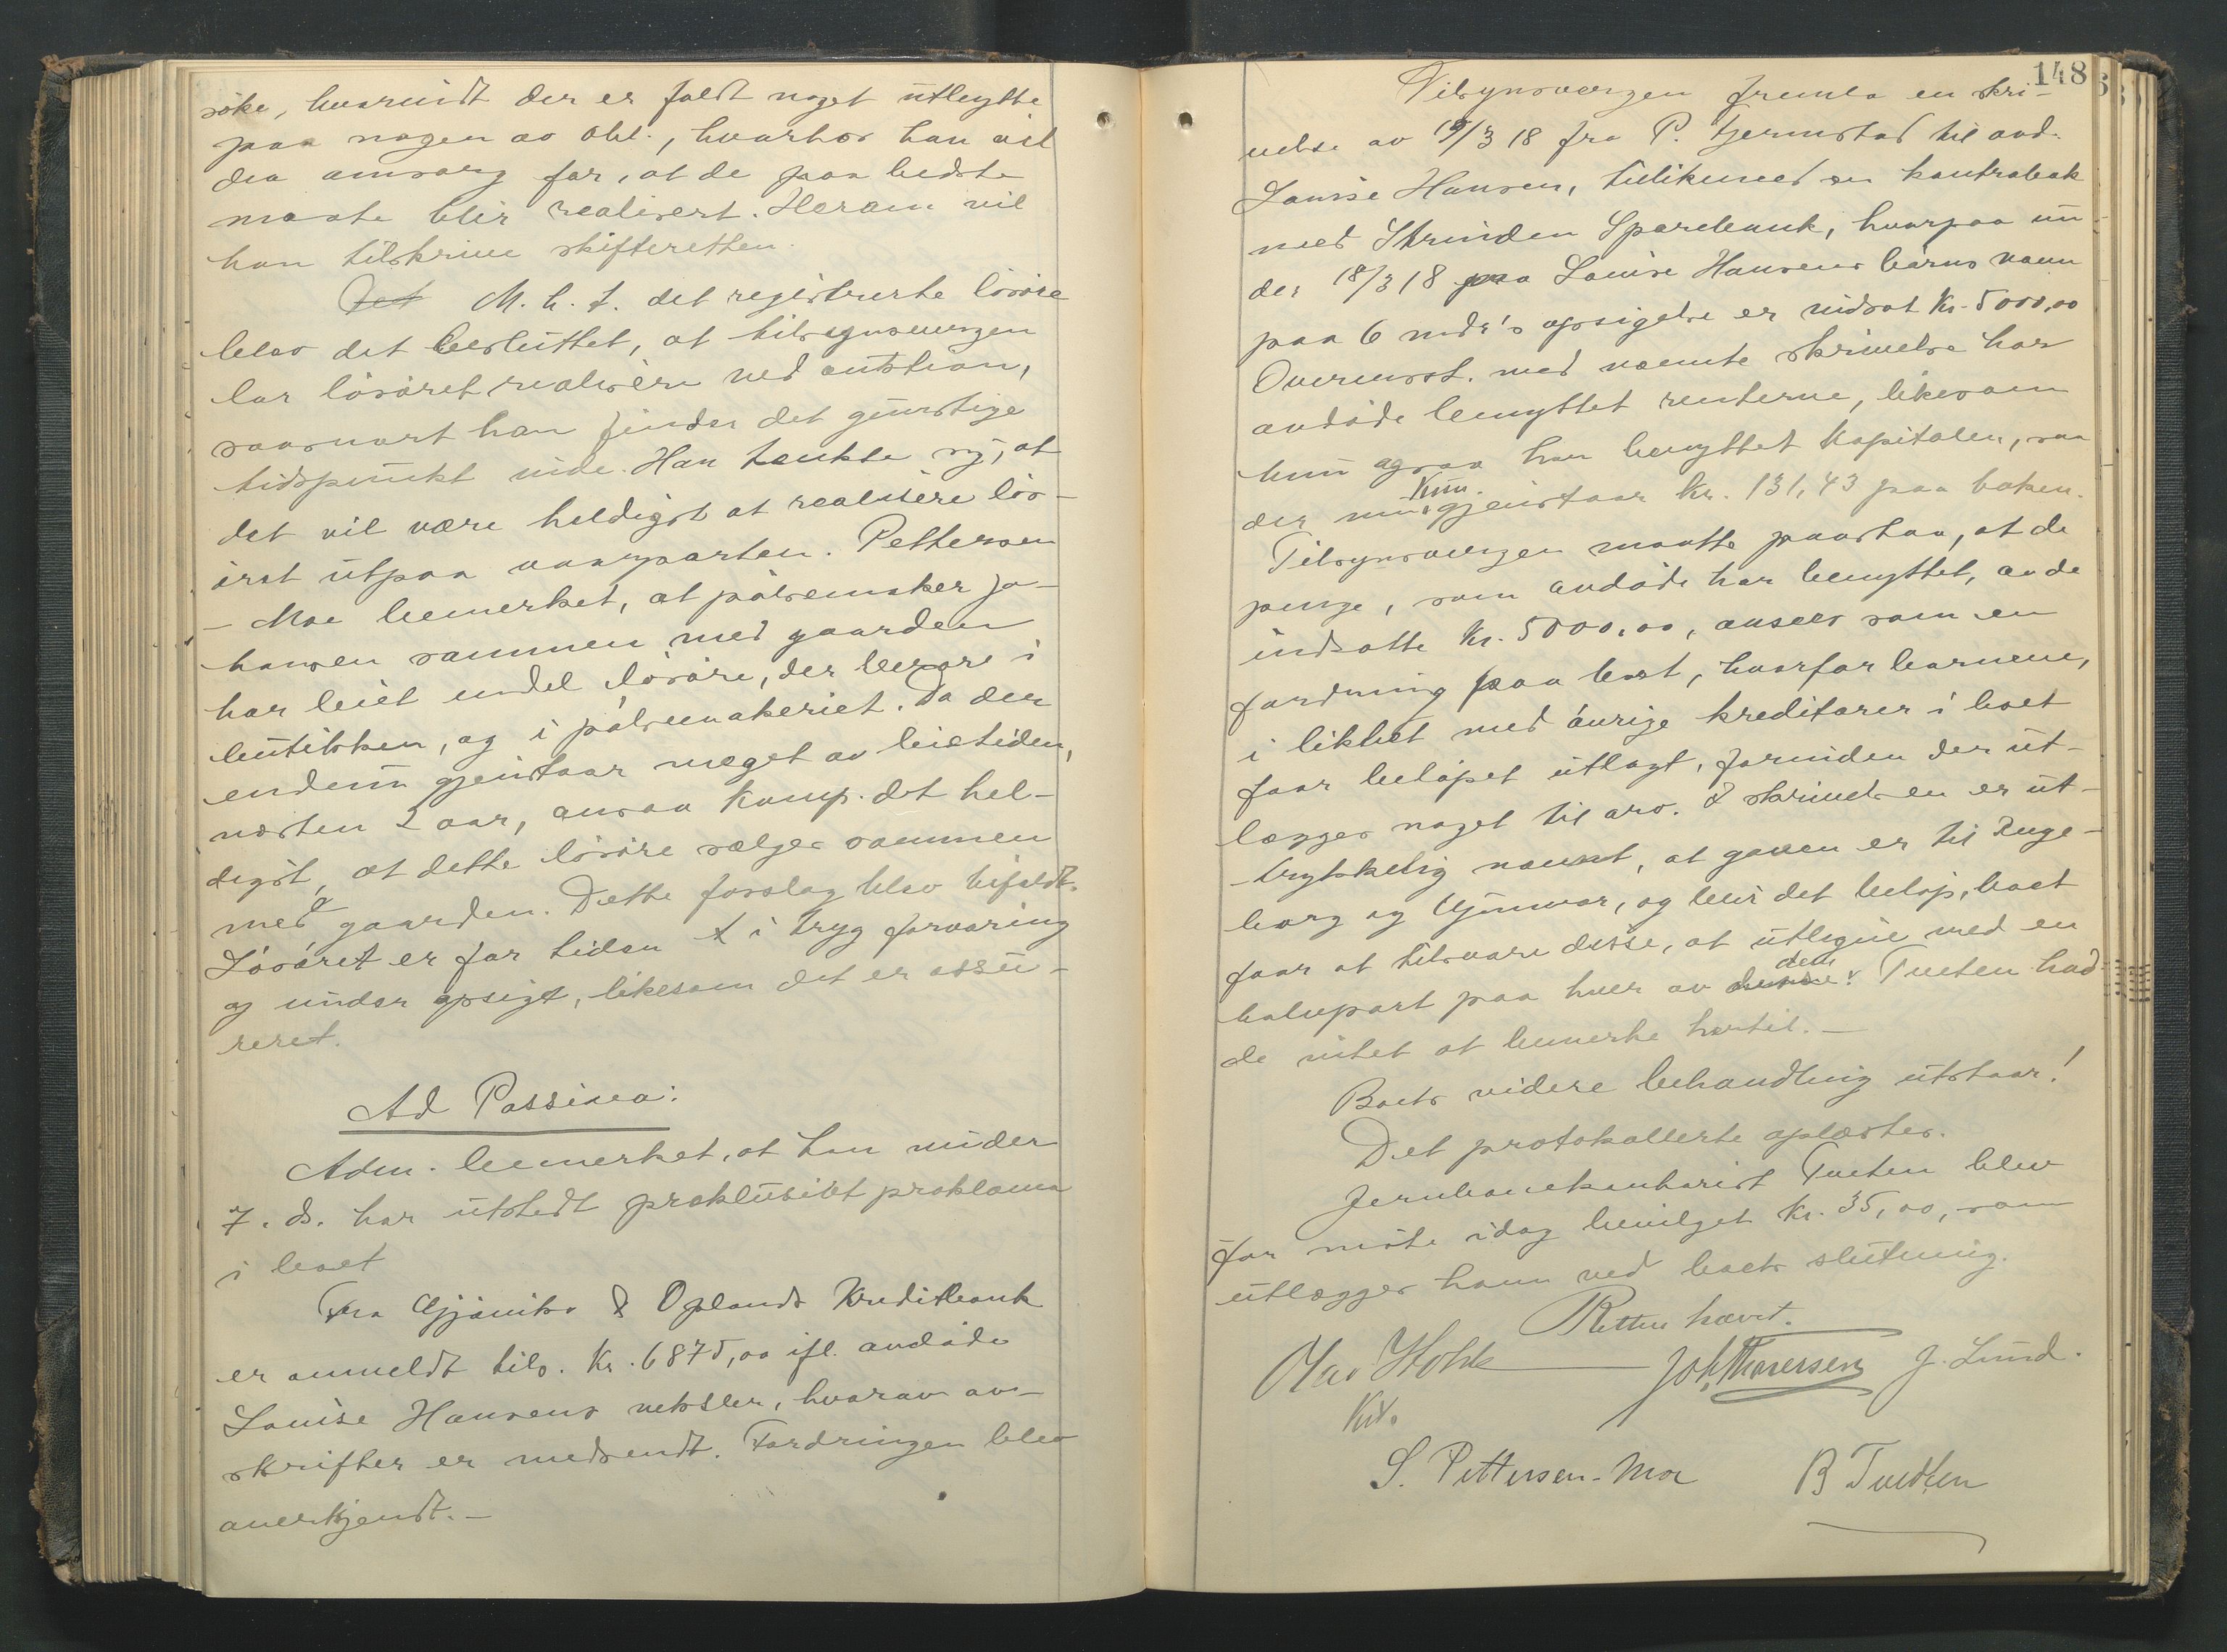 søke, hvorvidt der er faldt noget utbytte
paa nogen av obl., hvorhos han vil
dra omsorg for, at de paa bedste
maate blir realisert. Herom vil
han tilskrive skifteretten.
Det M. h. t. det registrerte løsøre
blev det besluttet, at tilsynsvergen
lar løsøret realisere ved auktion,
saasnart han finder det gunstige
tidspunkt inde. Han tænkte sig, at
det vil være heldigst at realisere løs-
øret utpaa vaarparten. Pettersen
- Moe bemerket, at pølsemaker Jo-
hansen sammen med gaarden
har leiet endel løsøre, der beror i
butikken, og i pølsemakeriet. Da der
endnu gjenstaar meget av leietiden,
næsten 2 aar, ansaa komp. det hel-
digst, at dette løsøre sælges sammen
med gaarden. Dette forslag blev bifaldt.
Løsøret er for tiden i tryg forvaring
og under opsigt, likesom det er assu-
reret.
Ad Passiva:
Adm. bemerket, at han under
7. ds. har utstedt proklusivt proklama
i boet
Fra Gjøviks & Oplands Kreditbank
er anmeldt tils. Kr. 6875,00 ifl. avdøde
Louise Hansens veksler, hvorav av-
skrifter er medsendt. Fordringen blev
anerkjendt. -
148
Tilsynsvergen fremla en skri-
velse av 19/3 18 fra P. Fjermstad til avd.
Louise Hansen, tillikemed en kontrabok
med Strinden Sparebank, hvorpaa un-
der 18/3 18 paa Louise Hansens barns navn
paa 6 mdr's opsigelse er indsat Kr. 5000,00
Overensst. med nævnte skrivelse har
avdøde benyttet renterne, likesom
hun ogsaa har benyttet kapitalen, saa
der nu kun gjenstaar kr. 131,43 paa boken.
Tilsynsvergen maatte paastaa, at de
penge, som avdøde har benyttet, av de
indsatte Kr. 5000,00, ansees som en
fordring paa boet, hvorfor barnene,
i likhet med øvrige kreditorer i boet
faar beløpet utlagt, forinden der ut-
lægges noget til arv. I skrivelsen er ut-
trykkelig nævnt, at gaven er til Inge-
borg og Gunvor, og blir det beløp, boet
faar at tilsvare disse, at utligne med en
halvpart paa hver av disse dem. Tveten had-
de intet at bemerke hertil. -
Boets videre behandling utstaar!
Det protokollerte oplæstes.
Jernbanekontorist Tveten blev
for møte idag bevilget Kr. 35,00, som
utlægges ham ved boets slutning.
Retten hævet.
Joh. Thoresen J. Lund.
S. Pettersen-Moe B Tvedten